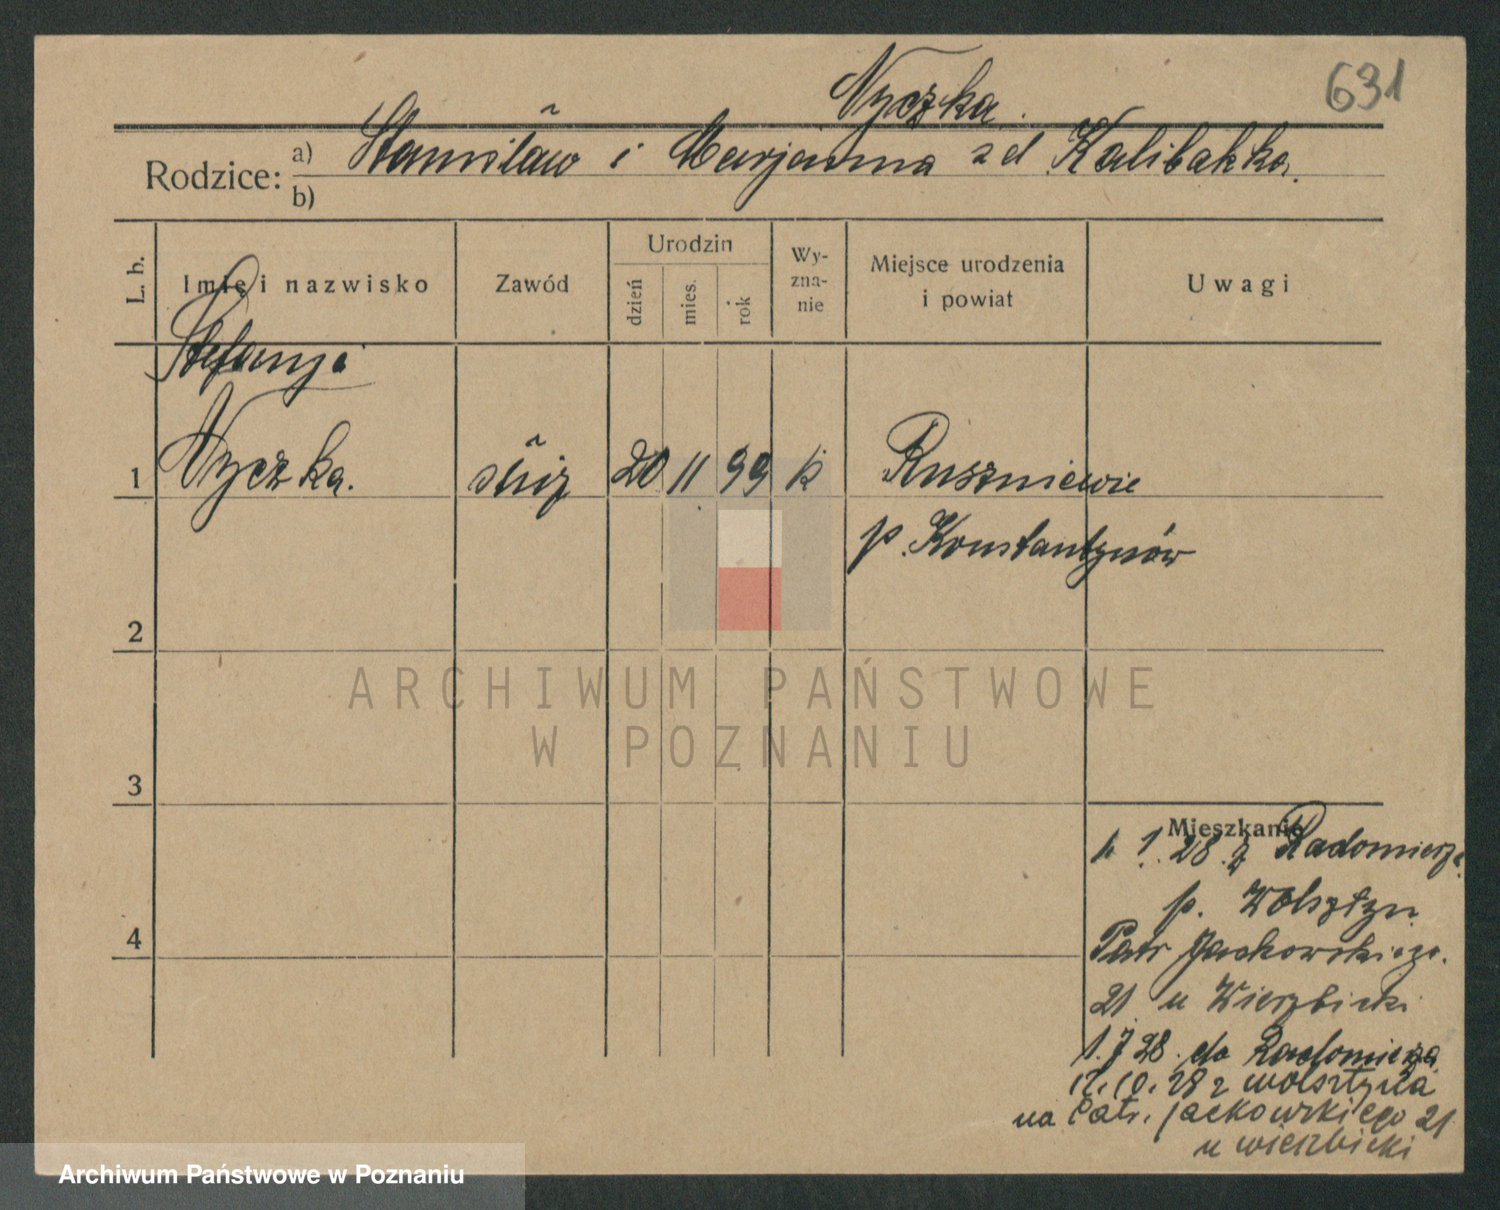 Nyczka.
631
Rodzice: a) Stanisław i Marjanna z d Kalibakka.
b)
L. b.
Imię i nazwisko
Zawód
Urodzin
dzień
mies.
rok
Wy-
zna-
nie
Miejsce urodzenia
i powiat
Uwagi
Stefanja
1 Nyczka. służ 20 11 99 k Ruszniewie
p. Konstantynów
2
ARCHIWUM PAŃSTWOWE
W POZNANIU
3
Mieszkanie
1. 28. z Radomierza
p. Wolsztyn
4
Patr Jackowskiego.
21 u Wierzbicki
1.7 28. do Radomierza
12.10.28 z Wolsztyna
na Patr. Jackowskiego 21
u Wierzbicki
Archiwum Państwowe w Poznaniu